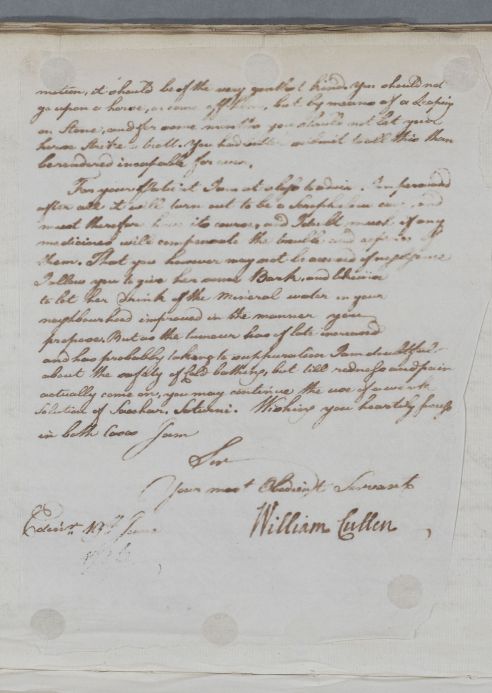 motion, it should be of the very gentlest kind. You should not
go upon a horse, or come off him, but by means of a Leaping
on Stone, and for some months you should not let your
horse strike a trott. You had rather submit to all this than
be rendered incapable for ever.
For your Patient I am at a loss to advise. I am persuaded
after all it will turn out to be a Scrophulous case, and
must therefore have its course, and I doubt much if any
medicines will compensate the trouble and expense of
them. That you however may not be accused of negligence
I allow you to give her some Bark, and advise
to let her Drink of the Mineral water in your
neighbourhood improved in the manner you
propose. But as the tumour has of late increased
and has probably taken to suppuration I am doubtful
about the safety of Cold bathing, but till redness and pain
actually come on, you may continue the use of a weak
Solution of Sacchar. Saturni. Wishing you heartily success
in both Cases I am
Sir
Your most Obedient Servant
Edinr. June
William Cullen